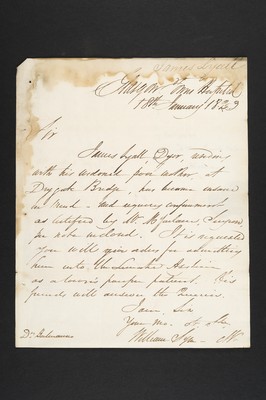 James Lyall
Glasgow Town Hospital
18th January 1823
Sir
James Lyall, Dyer, residing
with his widowed poor mother at
Drygate Bridge, has become insane
in mind - and requires confinement
as certified by Mr Surgeon
per note inclosed. It is requested
you will give orders for admitting
him into the Lunatic Asylum
as a town's pauper patient. His
friends will answer the Queries.
I am, Sir
Your Mo. Ob.
William
Dr. Balmanno